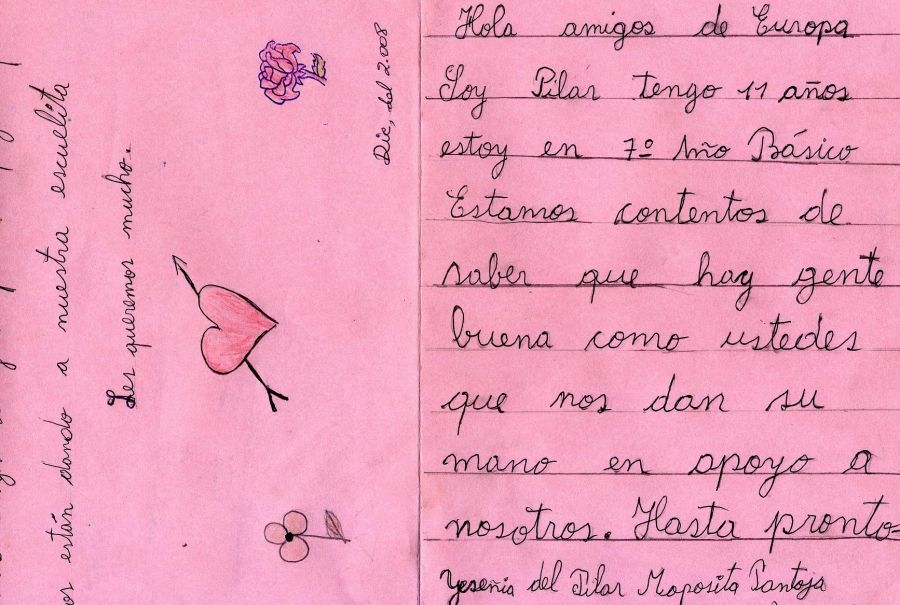 Hola amigos de Europa
Soy Pilar tengo 11 años
estoy en 7º Año Básico
Estamos contentos de
saber que hay gente
buena como ustedes
que nos dan su
mano en apoyo a
nosotros. Hasta pronto
Yesenia del Pilar Maposita Pantoja
están dando a nuestra escuelita
Les queremos mucho.
Dic, del 2.008